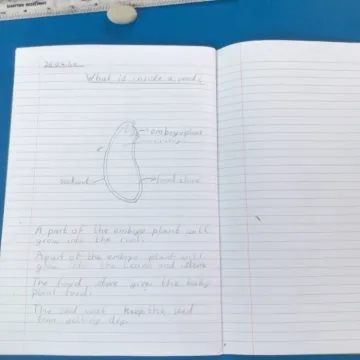 What is inside a seed?
embryo plant
food store
A part of the embryo plant will
grow into the root.
A part of the embryo plant will
grow into the leaves and stem.
The food store gives the baby
plant food.
The seed coat keep the seed
from drying